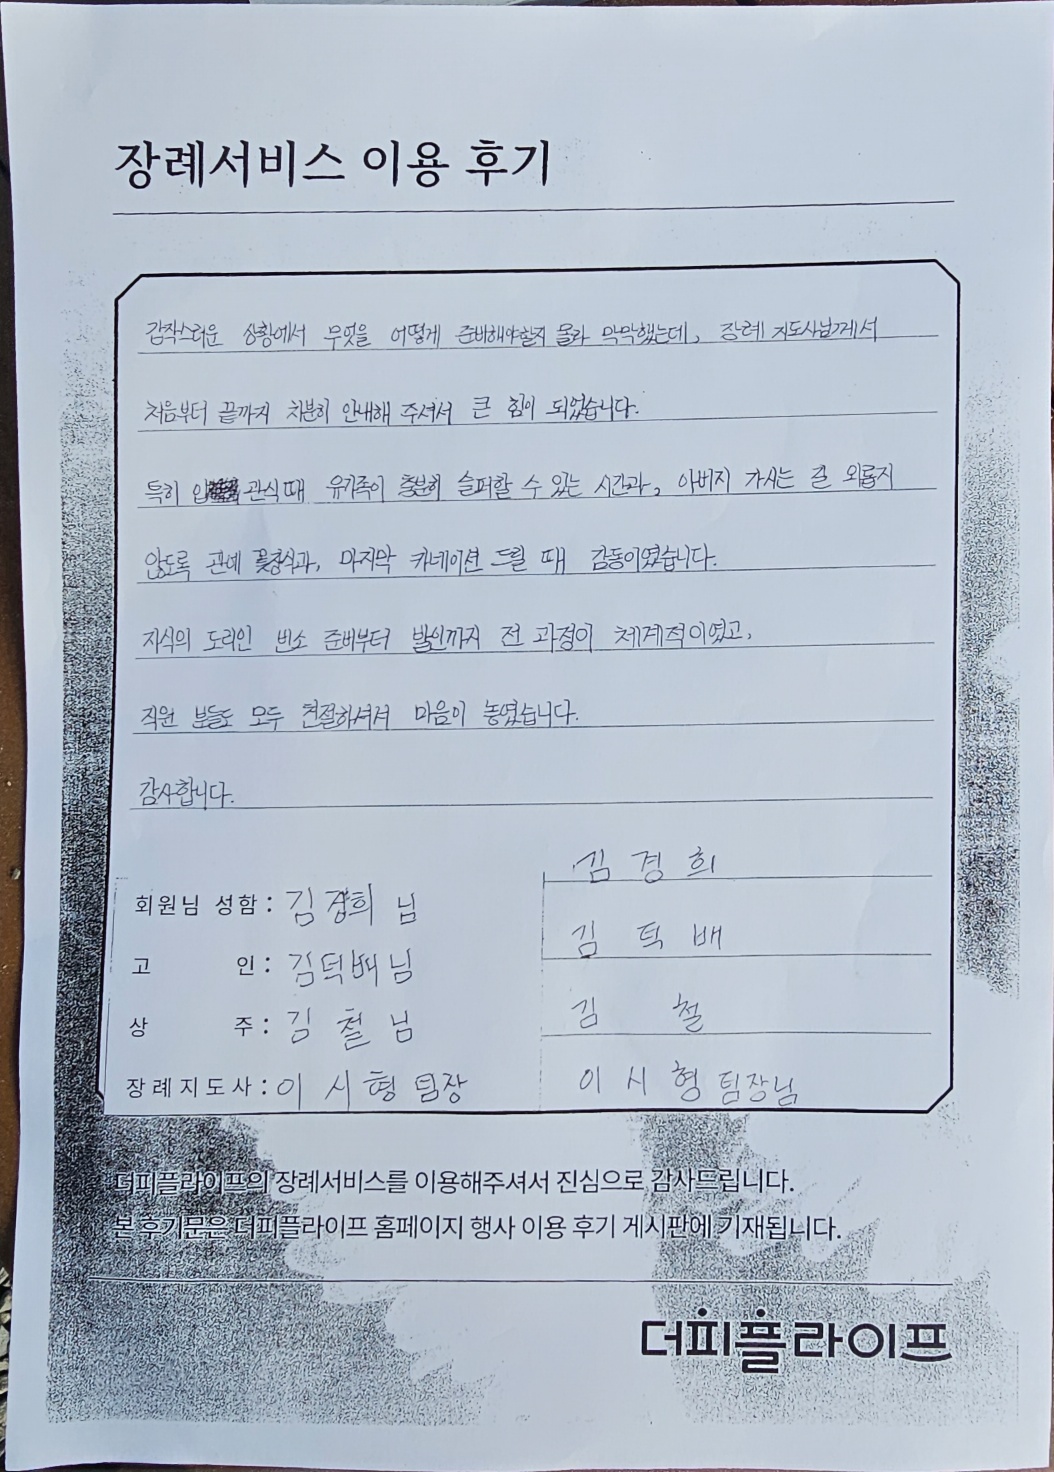 장례서비스 이용 후기
갑작스러운 상황에서 무엇을 어떻게 준비해야할지 몰라 막막했는데, 장례지도사님께서
처음부터 끝까지 차분히 안내해 주셔서 큰 힘이 되었습니다.
특히 입관식때 유가족이 충분히 슬퍼할 수 있는 시간과, 아버지 가시는 길 외롭지
않도록 관에 꽃장식과, 마지막 카네이션 드릴 때 감동이였습니다.
자식의 도리인 빈소 준비부터 발인까지 전 과정이 체계적이였고,
직원 분들도 모두 친절하셔서 마음이 놓였습니다.
감사합니다.
회원님 성함 : 김경희 님 김 경 희
고 인 : 김덕배님 김 덕 배
상 주 : 김 철 님 김 철
장례지도사 : 이 시 형 팀장 이 시 형 팀장님
더피플라이프의 장례서비스를 이용해주셔서 진심으로 감사드립니다.
본 후기문은 더피플라이프 홈페이지 행사 이용 후기 게시판에 기재됩니다.
더피플라이프